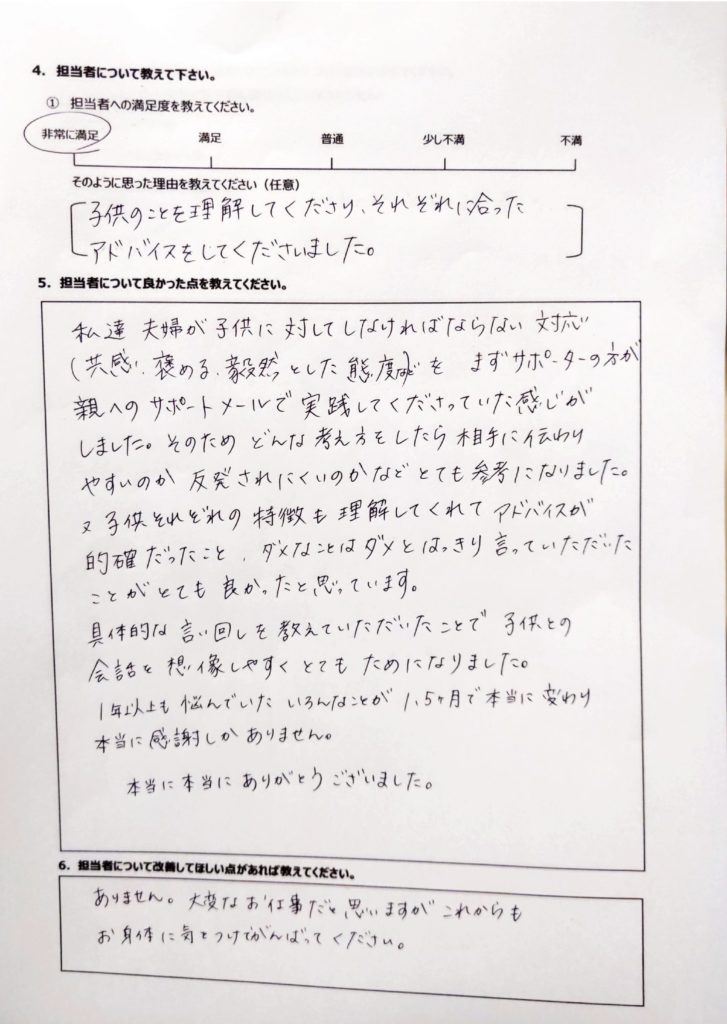 4. 担当者について教えて下さい。
① 担当者への満足度を教えてください。
非常に満足 満足 普通 少し不満 不満
そのように思った理由を教えてください（任意）
子供のことを理解してくださり、それぞれに合った
アドバイスをしてくださいました。
5. 担当者について良かった点を教えてください。
私達 夫婦が子供に対してしなければならない 対応
(共感、褒める、毅然とした態度など)を まずサポーターの方が
親へのサポートメールで実践してくださっていた感じが
しました。そのため どんな考え方をしたら相手に伝わり
やすいのか 反発されにくいのかなど とても参考になりました。
又 子供それぞれの特徴も理解してくれてアドバイスが
的確だったこと、ダメなことはダメとはっきり言っていただいた
ことがとても良かったと思っています。
具体的な言い回しを教えていただいたことで子供との
会話を想像しやすくとてもためになりました。
1年以上も悩んでいたいろんなことが1.5ヶ月で本当に変わり
本当に感謝しかありません。
本当に本当にありがとうございました。
6. 担当者について改善してほしい点があれば教えてください。
ありません。大変なお仕事だと思いますがこれからも
お身体に気をつけてがんばってください。